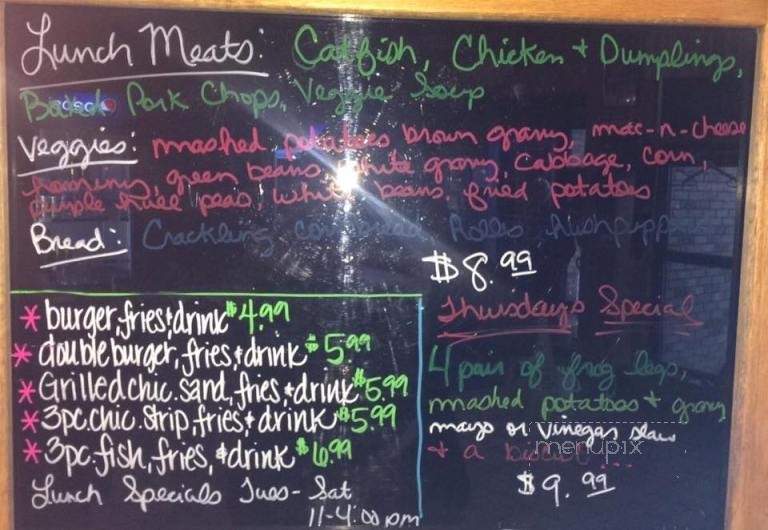 Lunch Meats: Catfish, Chicken + Dumplings,
Baked Pork Chops, Veggie Soup
Veggies: mashed potatoes brown gravy, mac-n-cheese
hominy, green beans, white gravy, cabbage, corn,
purple hull peas, white beans, fried potatoes
Bread: Crackling cornbread Rolls Hushpuppies
$8.99
* burger, fries & drink $4.99
* double burger, fries & drink $5.99
* Grilled chic. sand, fries, + drink $5.99
* 3pc. chic. strip, fries + drink $5.99
* 3pc. fish, fries, + drink $6.99
Lunch Specials Tues - Sat
11-4:00 pm
Thursdays Special
4 pair of frog legs,
mashed potatoes + gravy
mayo or vinegar slaw
+ a biscuit ...
$9.99
menupix